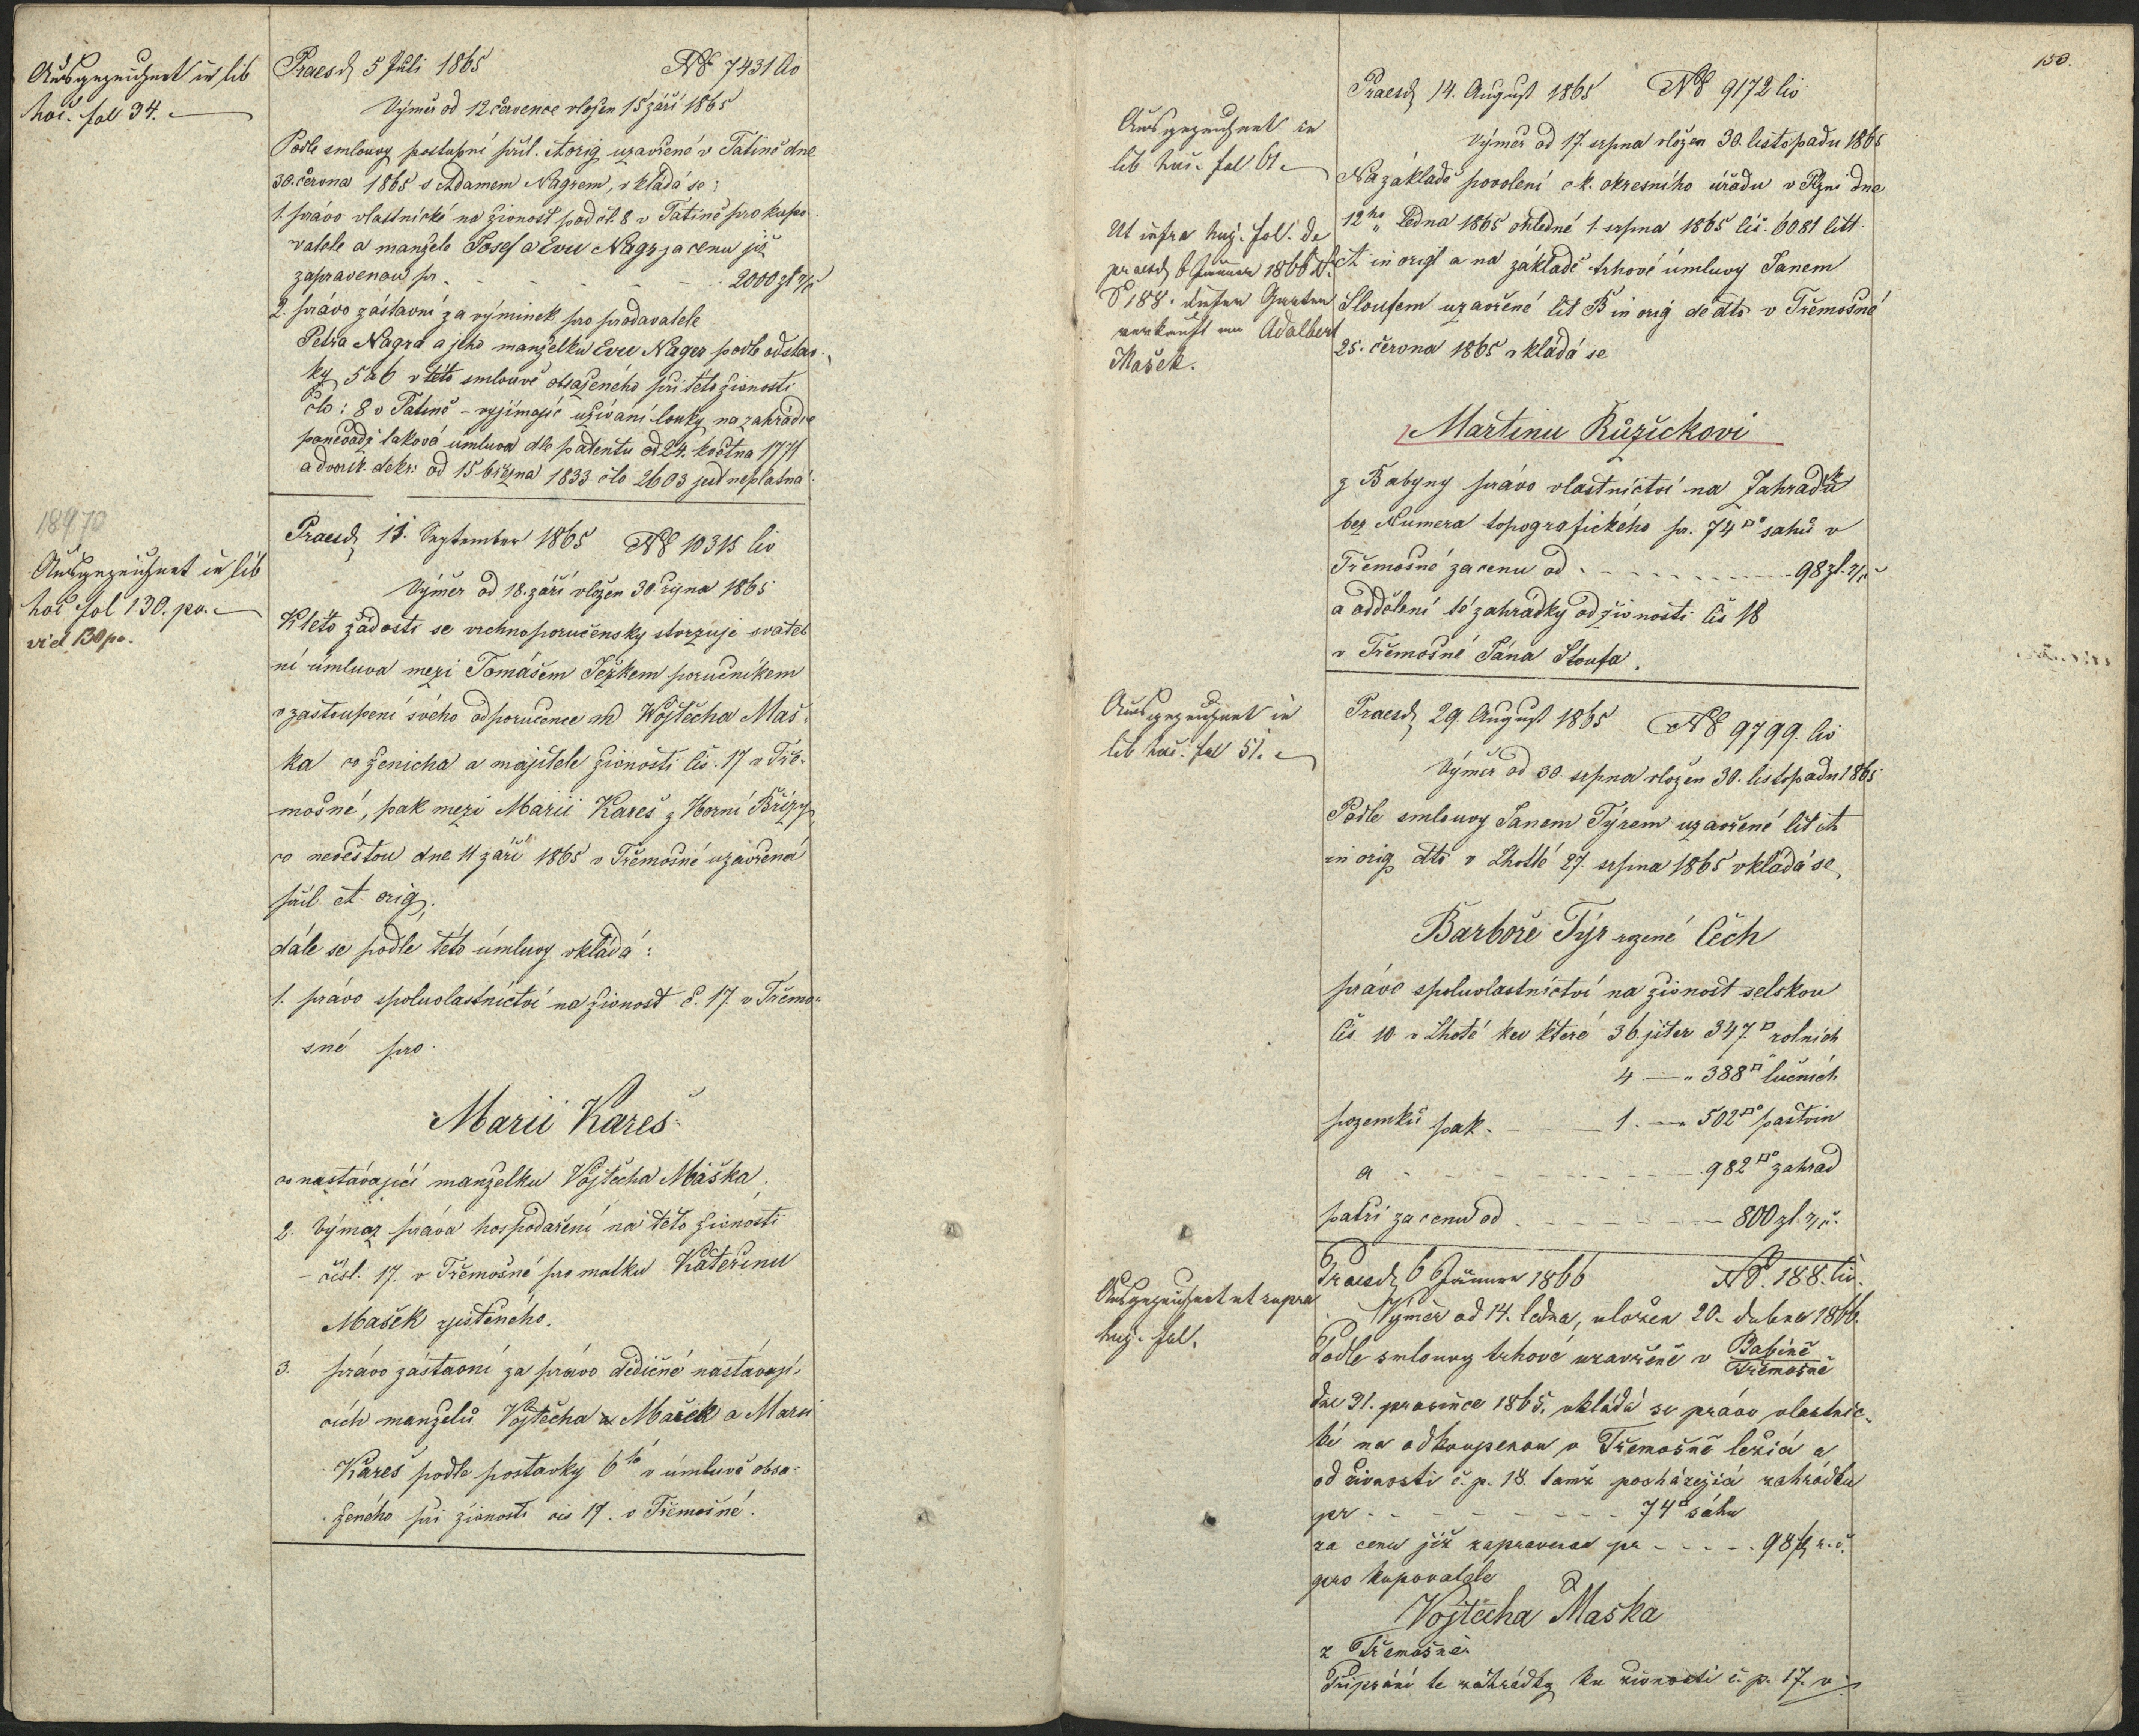 Ausgezeichnet in lib
hoc. fol 34.
Praesd 5 Juli 1865 No 7431 civ
Výměr od 12 července vložen 15 září 1865
Podle smlouvy postupní příl. A orig uzavřené v Tatině dne
30. června 1865 s Adamem Nagrem, vkládá se:
1. právo vlastnické na živnost pod čl. 8 v Tatině pro kupo-
vatele a manžele Josef a Evu Nagr za cenu již
zapravenou pr. - - - - - - 2000 zl r/č
2. právo zástavní za výminek pro prodavatele
Petra Nagra a jeho manželku Evu Nager podle odstav-
ky 5 a 6 v této smlouvě obsaženého při této živnosti
člo: 8 v Tatině - vyjímajíc užívání louky na zahrádce
poněvadž taková úmluva dle patentu od 24. května 1771
a dvorsk. dekr: od 15 března 1833 člo 2603 jest neplatná.
18970
Ausgezeichnet in lib
hoc fol 130. po.
vid 130 po.
Praesd 11 September 1865 No 10315 civ
Výměr od 18. září vložen 30 října 1865
K této žádosti se vrchnoporučensky stvrzuje svateb
ní úmluva mezi Tomášem Ježkem poručníkem
v zastoupení svého odporučence Wojtěcha Maš-
ka co ženicha a majitele živnosti čís. 17 v Tře-
mošné, pak mezi Marii Kareš z Horní Břízy
co nevěstou dne 11 září 1865 v Třemošné uzavřená
příl. A. orig.
dále se podle této úmluvy vkládá:
1. právo spoluvlastnictví na živnost č. 17. v Třemo-
šné pro
Marii Kareš
co nastávající manželku Vojtěcha Maška.
2. Výmaz práva hospodaření na této živnosti
čísl. 17. v Třemošné pro matku Kateřinu
Mašek zjištěného.
3. právo zástavní za právo dědičné nastávají-
cích manželů Vojtěcha Mašek a Marii
Kareš podle postavky 6té v úmluvě obsa-
ženého při živnosti čís 17. v Třemošné.
150.
Ausgezeichnet in
lib huc. fol 61
Ut infra huj. fol. de
praesd 6 Jänner 1866
No 188. dieser Garten
verkauft an Adalbert
Mašek.
Praesd 14. August 1865 No 9172 civ
Výměr od 17. srpna vložen 30. listopadu 1865
Na základě povolení c. k. okresního úřadu v Plzni dne
12ho ledna 1865 ohledně 1. srpna 1865 čís. 6081 litt.
A in origl a na základě trhové úmluvy Janem
Sloufem uzavřené lit B in orig de dto v Třemošné
25. června 1865 vkládá se
Martinu Růžičkovi
z Babyny právo vlastnictví na Zahrádku
bez Numera topografického pr. 74 □° sahů v
Třemošné za cenu od - - - - - 98 zl. r/č
a oddělení té zahrádky od živnosti čís 18
v Třemošné Jána Sloufa.
Ausgezeichnet in
lib huc. fol 51.
Praesd 29. August 1865 No 9799. civ
Výměr od 30. srpna vložen 30. listopadu 1865
Podle smlouvy Janem Týrem uzavřené lit A
in orig dto v Lhotě 27. srpna 1865 vkládá se
Barboře Týr rozené Čech
právo spoluvlastnictví na živnost selskou
čís. 10 v Lhotě ku které 36 jiter 347 □ rolních
4 — " 388 □ lučních
pozemků pak. — 1. — 502 □° pastvin
a - - - - - - 982 □° zahrad
patří za cenu od - - - - - 800 zl. r/č.
Ausgezeichnet ut supra
huj. fol.
Praesd 6 Jänner 1866 No. 188. civ.
Výměr od 14. ledna, vložen 20. dubna 1866.
Podle smlouvy trhové uzavřené v Babině
Třemošné
dne 31. prosince 1865. vkládá se právo vlastnic-
ké na odkoupenou v Třemošně ležící a
od živnosti č. p. 18. tamž pocházející zahrádku
pr - - - - - - - 74 □ sáhu
za cenu již zapravenou pr - - - - 98 fl r. č.
pro kupovatele
Vojtěcha Maška
z Třemošné.
Připsání té zahrádky ku živnosti č. p. 17. v